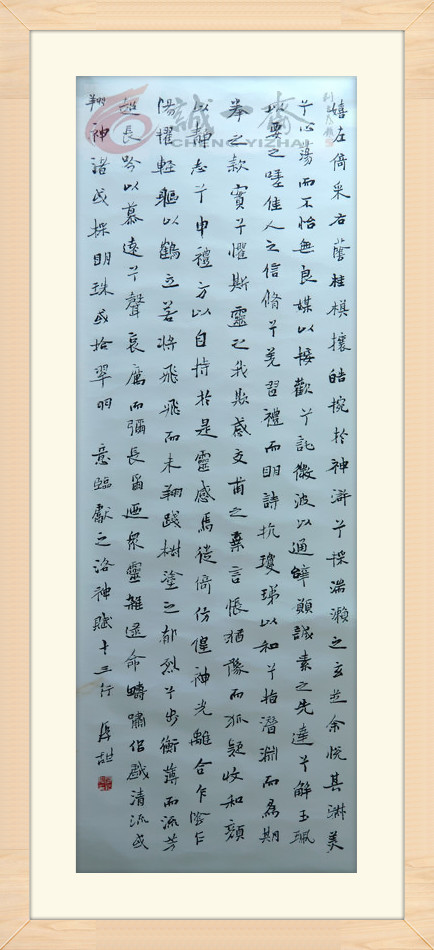 嬉左倚采右蔭桂棋攘皓捥於神滸兮採湍瀨之玄芝余悅其淑美
兮心蕩而不怡無良媒以接歡兮託微波以通辭願誠素之先達兮解玉珮
以要之嗟佳人之信脩兮羌習禮而明詩抗瓊珶以和兮指潛淵而為期
拳之款實兮懼斯靈之我欺感交甫之棄言悵猶豫而狐疑收和顏
以靜志兮申禮方以自持於是靈感焉徙倚仿偟神光離合乍陰乍
陽擢輕軀以鶴立若將飛飛而未翔踐椒塗之郁烈兮步衡薄而流芳
超長吟以慕遠兮聲哀厲而彌長爾迺眾靈雜遝命疇嘯侶戲清流或
翔神渚或採明珠或拾翠羽 意臨獻之洛神賦十三行
誠一齋
CHENG YIZHAI